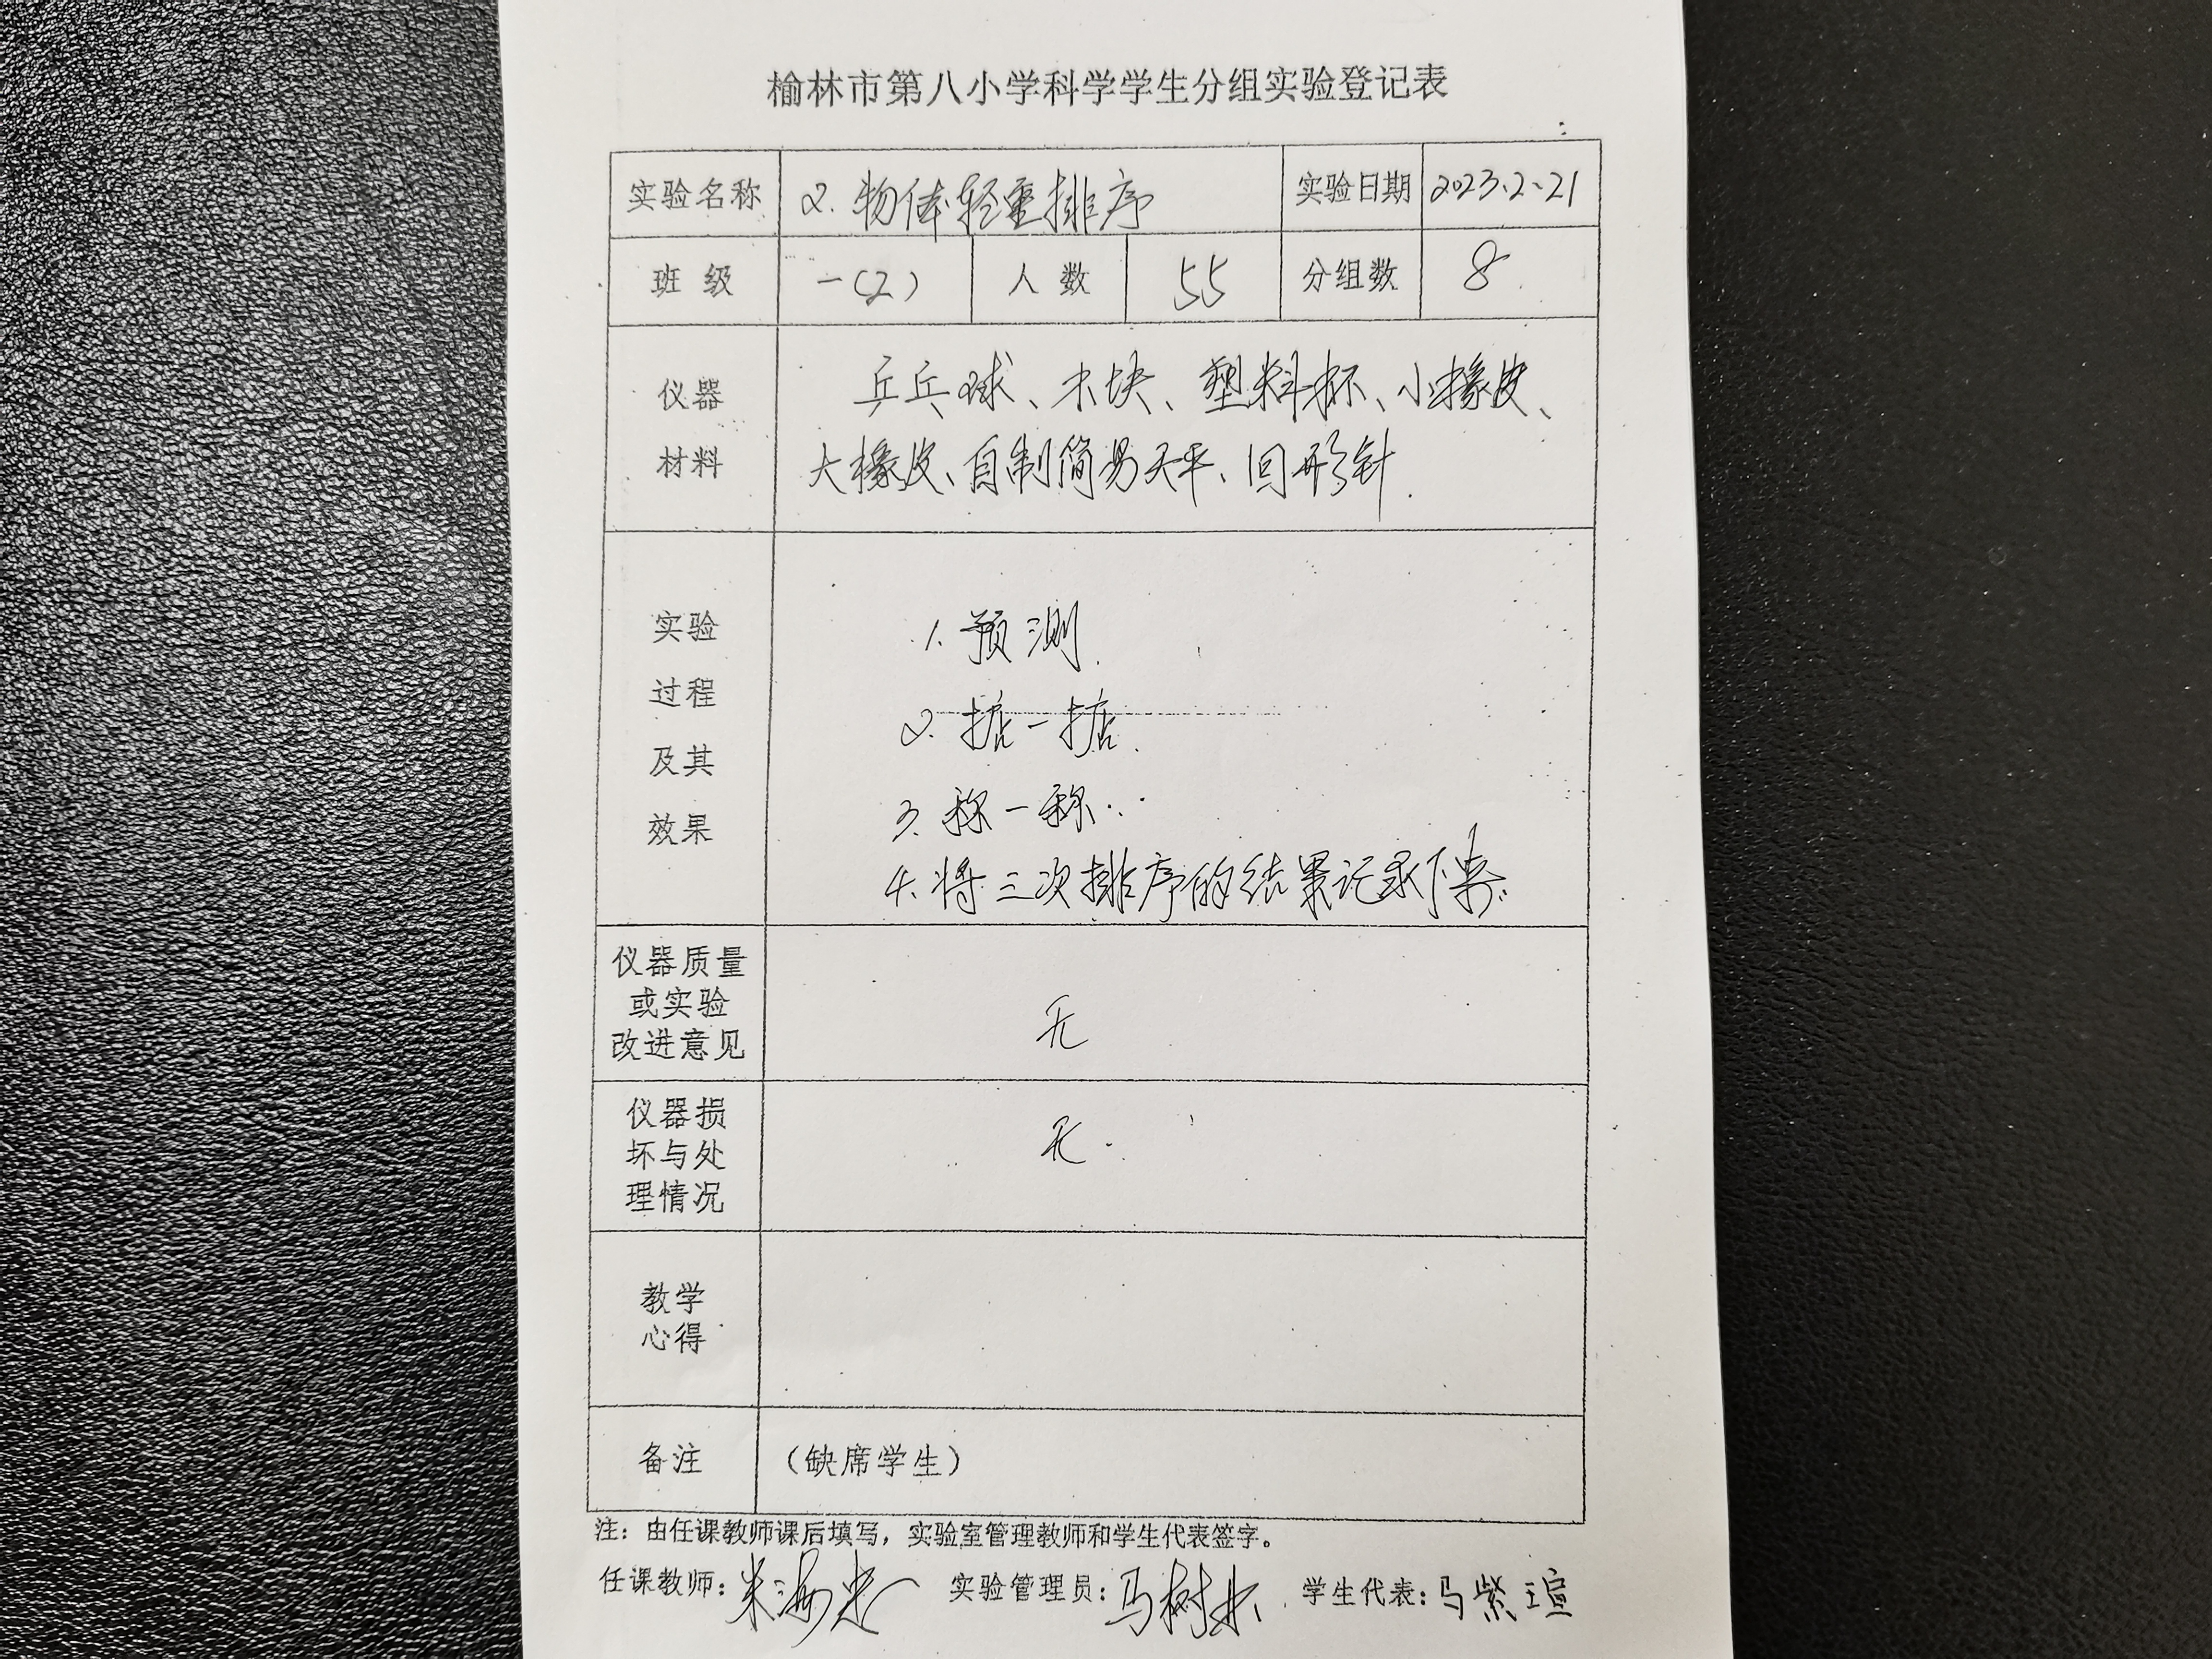 榆林市第八小学科学学生分组实验登记表
实验名称 2. 物体轻重排序 实验日期 2023.2.21
班级 一(2) 人数 55 分组数 8
仪器
材料
乒乓球、木块、塑料杯、小橡皮、
大橡皮、自制简易天平、回形针.
实验
过程
及其
效果
1. 预测.
2. 掂一掂.
3. 称一称.
4. 将三次排序的结果记录下来.
仪器质量
或实验
改进意见
无
仪器损
坏与处
理情况
无.
教学
心得
备注 (缺席学生)
注：由任课教师课后填写，实验室管理教师和学生代表签字。
任课教师： 实验管理员： 马树 学生代表：马紫瑄